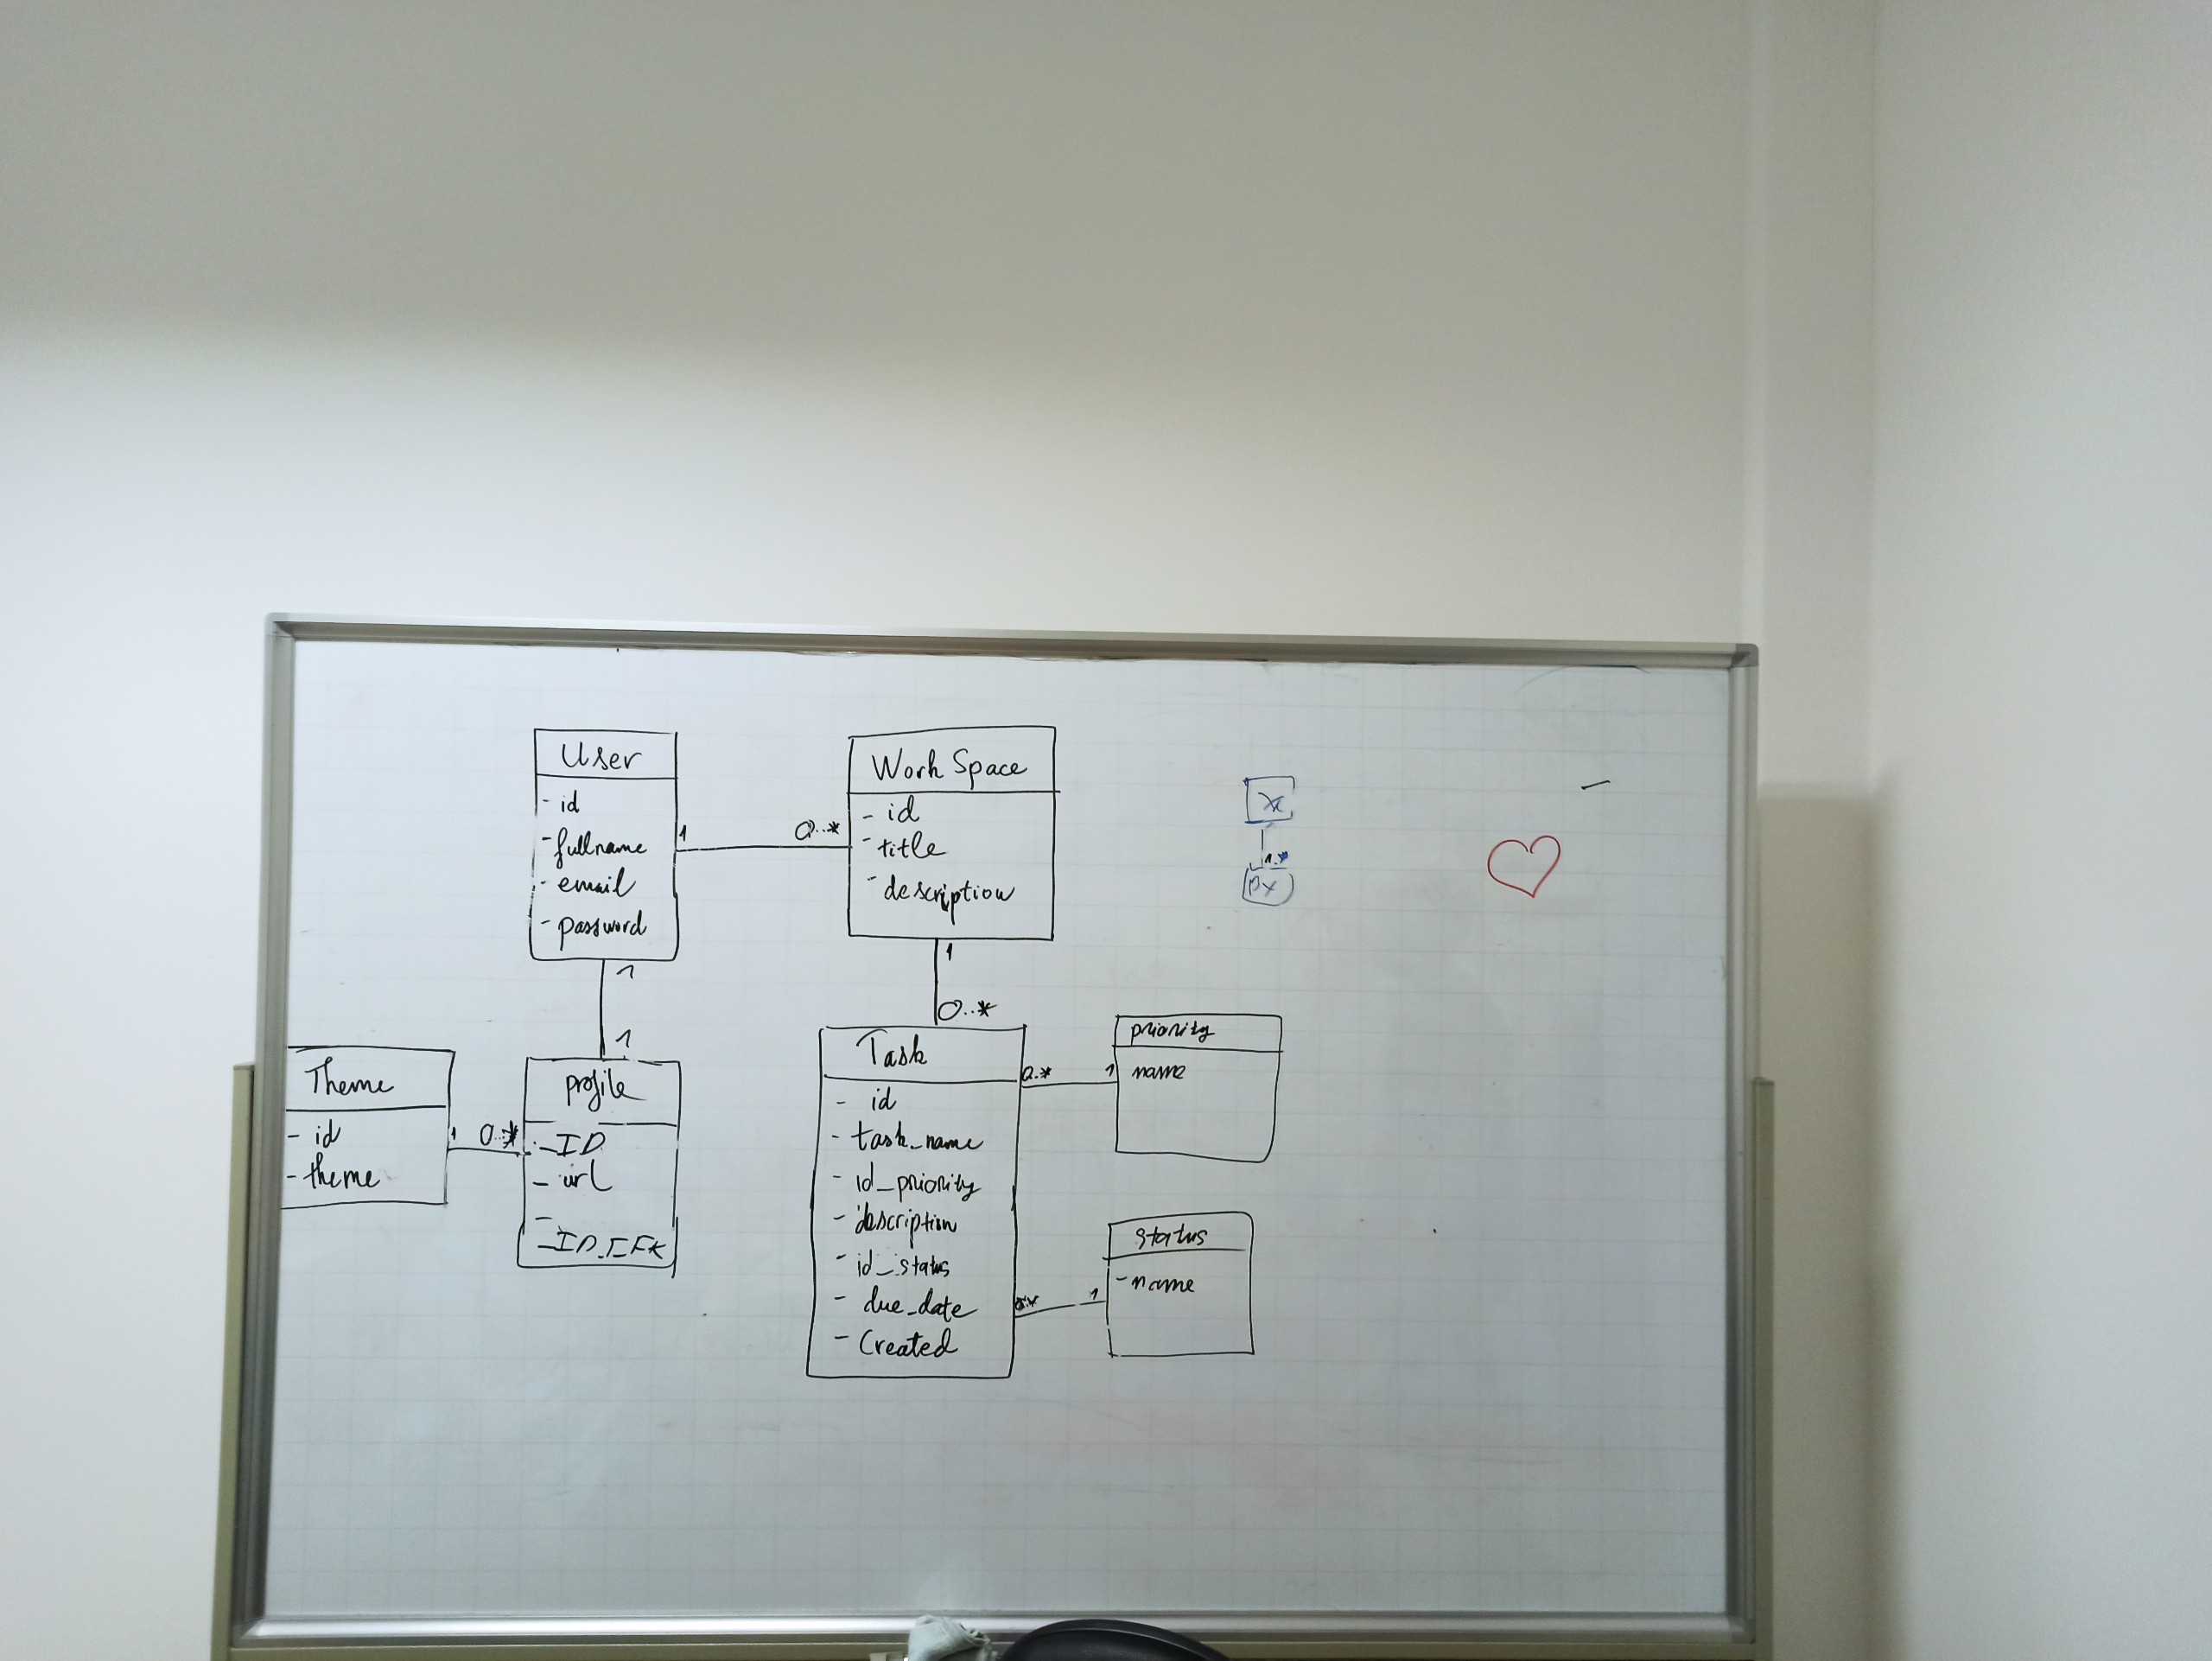 User
- id
- fullname
- email
- password
1
0..*
Work Space
- id
- title
- description
1
1
1
0..*
Theme
- id
- theme
1
0..*
profile
- ID
- url
-
Task
- id
- task_name
- id_priority
- description
- id_status
- due_date
- Created
0..*
1
priority
name
1
status
- name
1..*